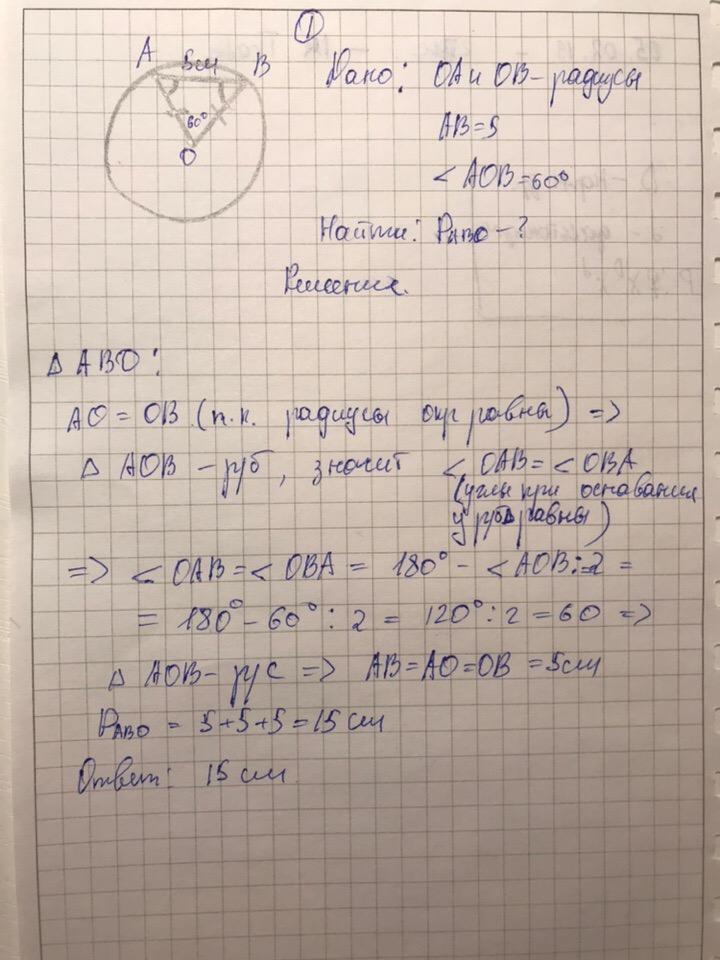 1
A 5см B
60°
O
Дано: OA и OB - радиусы
AB=5
< AOB=60°
Найти: P ABO - ?
Решение.
△ ABO:
AO = OB (т.к. радиусы окр равны) =>
△ AOB - р/б, значит < OAB = < OBA
(углы при основании
у р/б △ равны)
=> < OAB = < OBA = 180° - < AOB : 2 =
= 180° - 60° : 2 = 120° : 2 = 60 =>
△ AOB - р/с => AB = AO = OB = 5см
P ABO = 5+5+5 = 15 см
Ответ: 15 см.